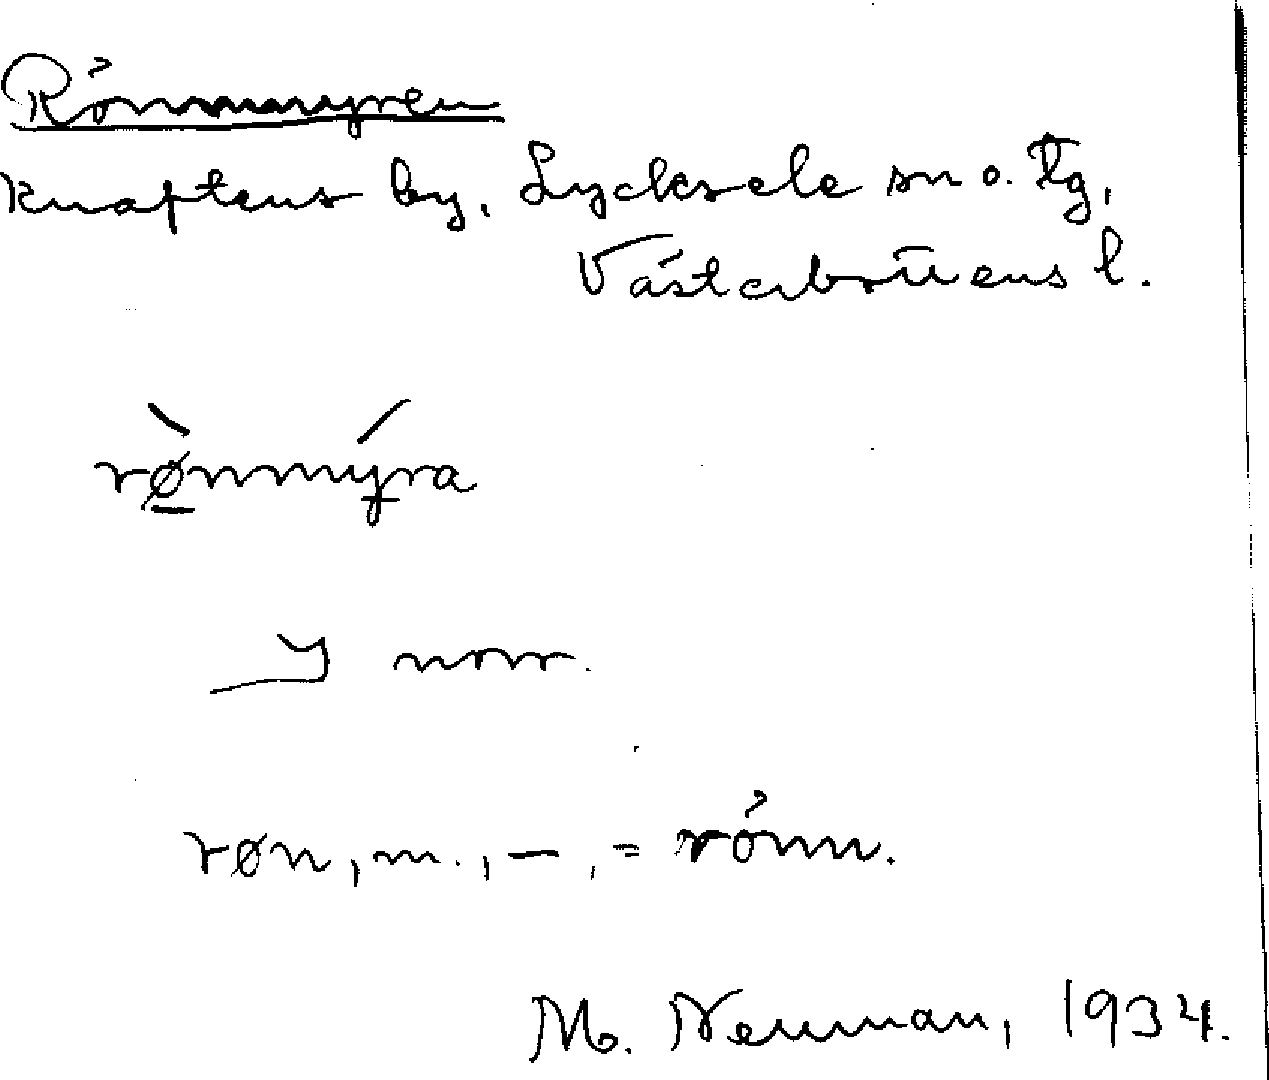 Rönnmyren
Knaftens by, Lycksele sn o. tg,
Västerbottens l.
rø̱nmyra
y norr.
røn, m., –, = rönn.
M. Neuman, 1934.